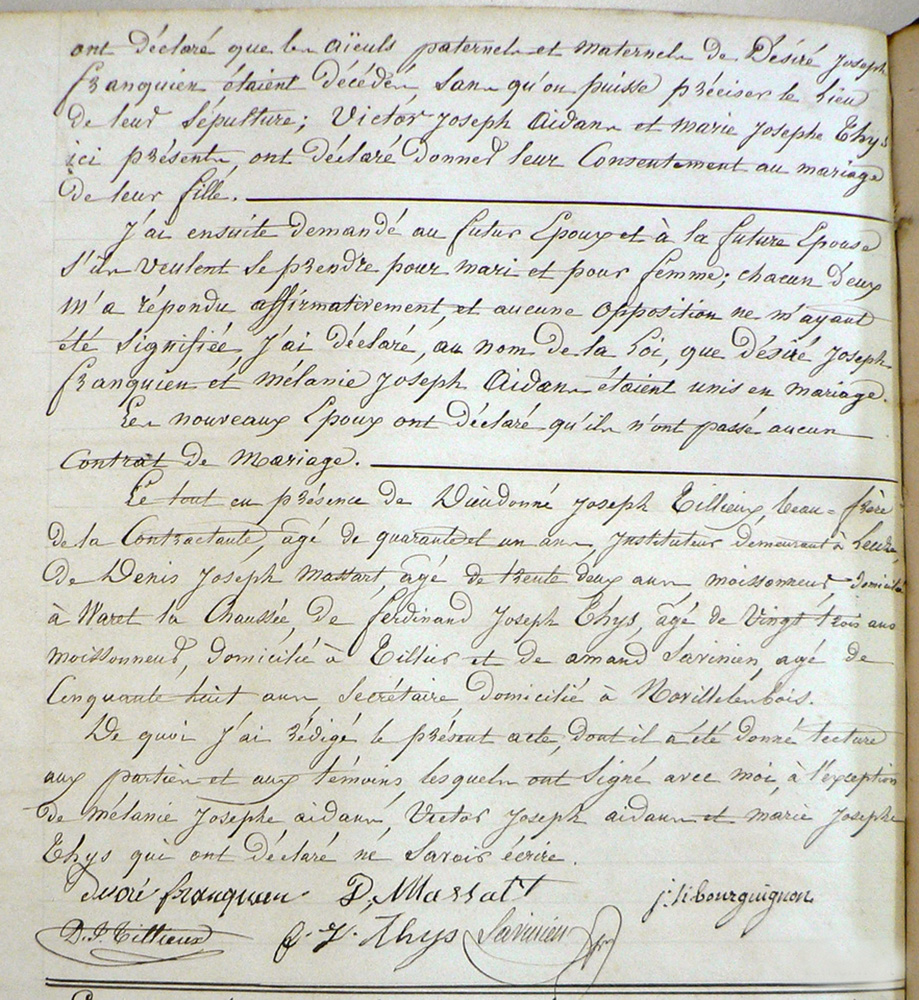 ont déclaré que les aïeuls paternels et maternels de Désiré Joseph
franquien étaient décédés sans qu'on puisse préciser le lieu
de leur sépulture; Victor Joseph Aidans et marie Josephe Thys
ici présents, ont déclaré donner leur Consentement au mariage
de leur fille.
J'ai ensuite demandé au futur Epoux et à la future Epouse
s'ils veulent se prendre pour mari et pour femme; chacun d'eux
m'a répondu affirmativement, et aucune opposition ne m'ayant
été signifiée, J'ai déclaré, au nom de la Loi, que désiré Joseph
franquien et mélanie Joseph Aidans étaient unis en mariage.
Les nouveaux Epoux ont déclaré qu'ils n'ont passé aucun
Contrat de Mariage.
Le tout en présence de Dieudonné Joseph Tillieux, beau=frère
de la Contractante, âgé de quarante et un ans, Instituteur demeurant à
de Denis Joseph Massart, âgé de trente deux ans moissonneur domicilié
à Waret la Chaussée de ferdinand Joseph Thys, âgé de vingt trois ans
moissonneur, domicilié à Tillier et de amand Savinien, agé de
Cinquante huit ans Secrétaire domicilié à Novillelenbois.
De quoi J'ai rédigé le présent acte, dont il a été donné lecture
aux parties et aux témoins lesquels ont signé avec moi, à l'exception
de mélanie Josephe aidans, Victor Joseph aidans et marie Josephe
Thys qui ont déclaré ne savoir écrire.
Desiré franquien D, Massart j. h bourguignon
D. J. Tillieux f. J. Thys Savinien